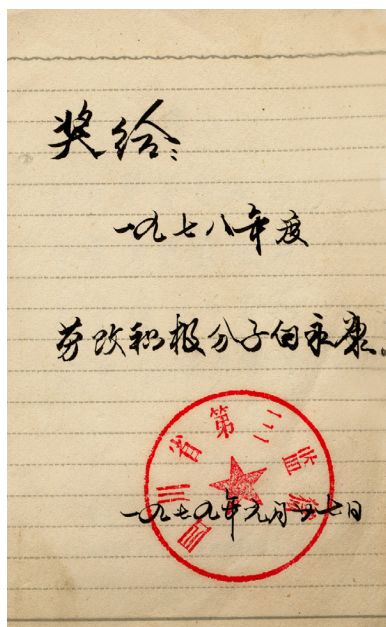 奖给：
一九七八年度
劳改积极分子白永康。
四川省第三监狱
一九七九年元月廿七日